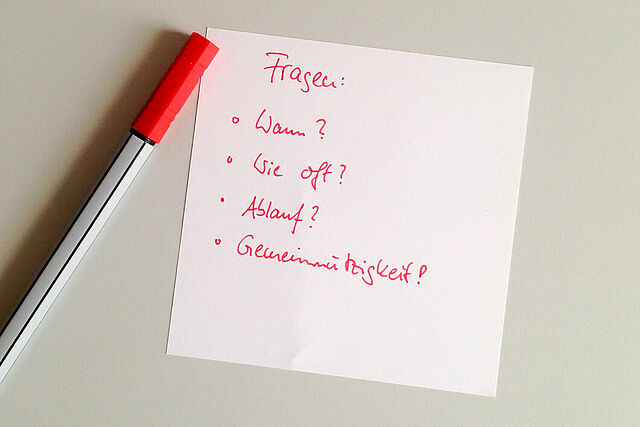 Fragen:
• Wann?
• Wie oft?
• Ablauf?
• Gemeinnützigkeit?